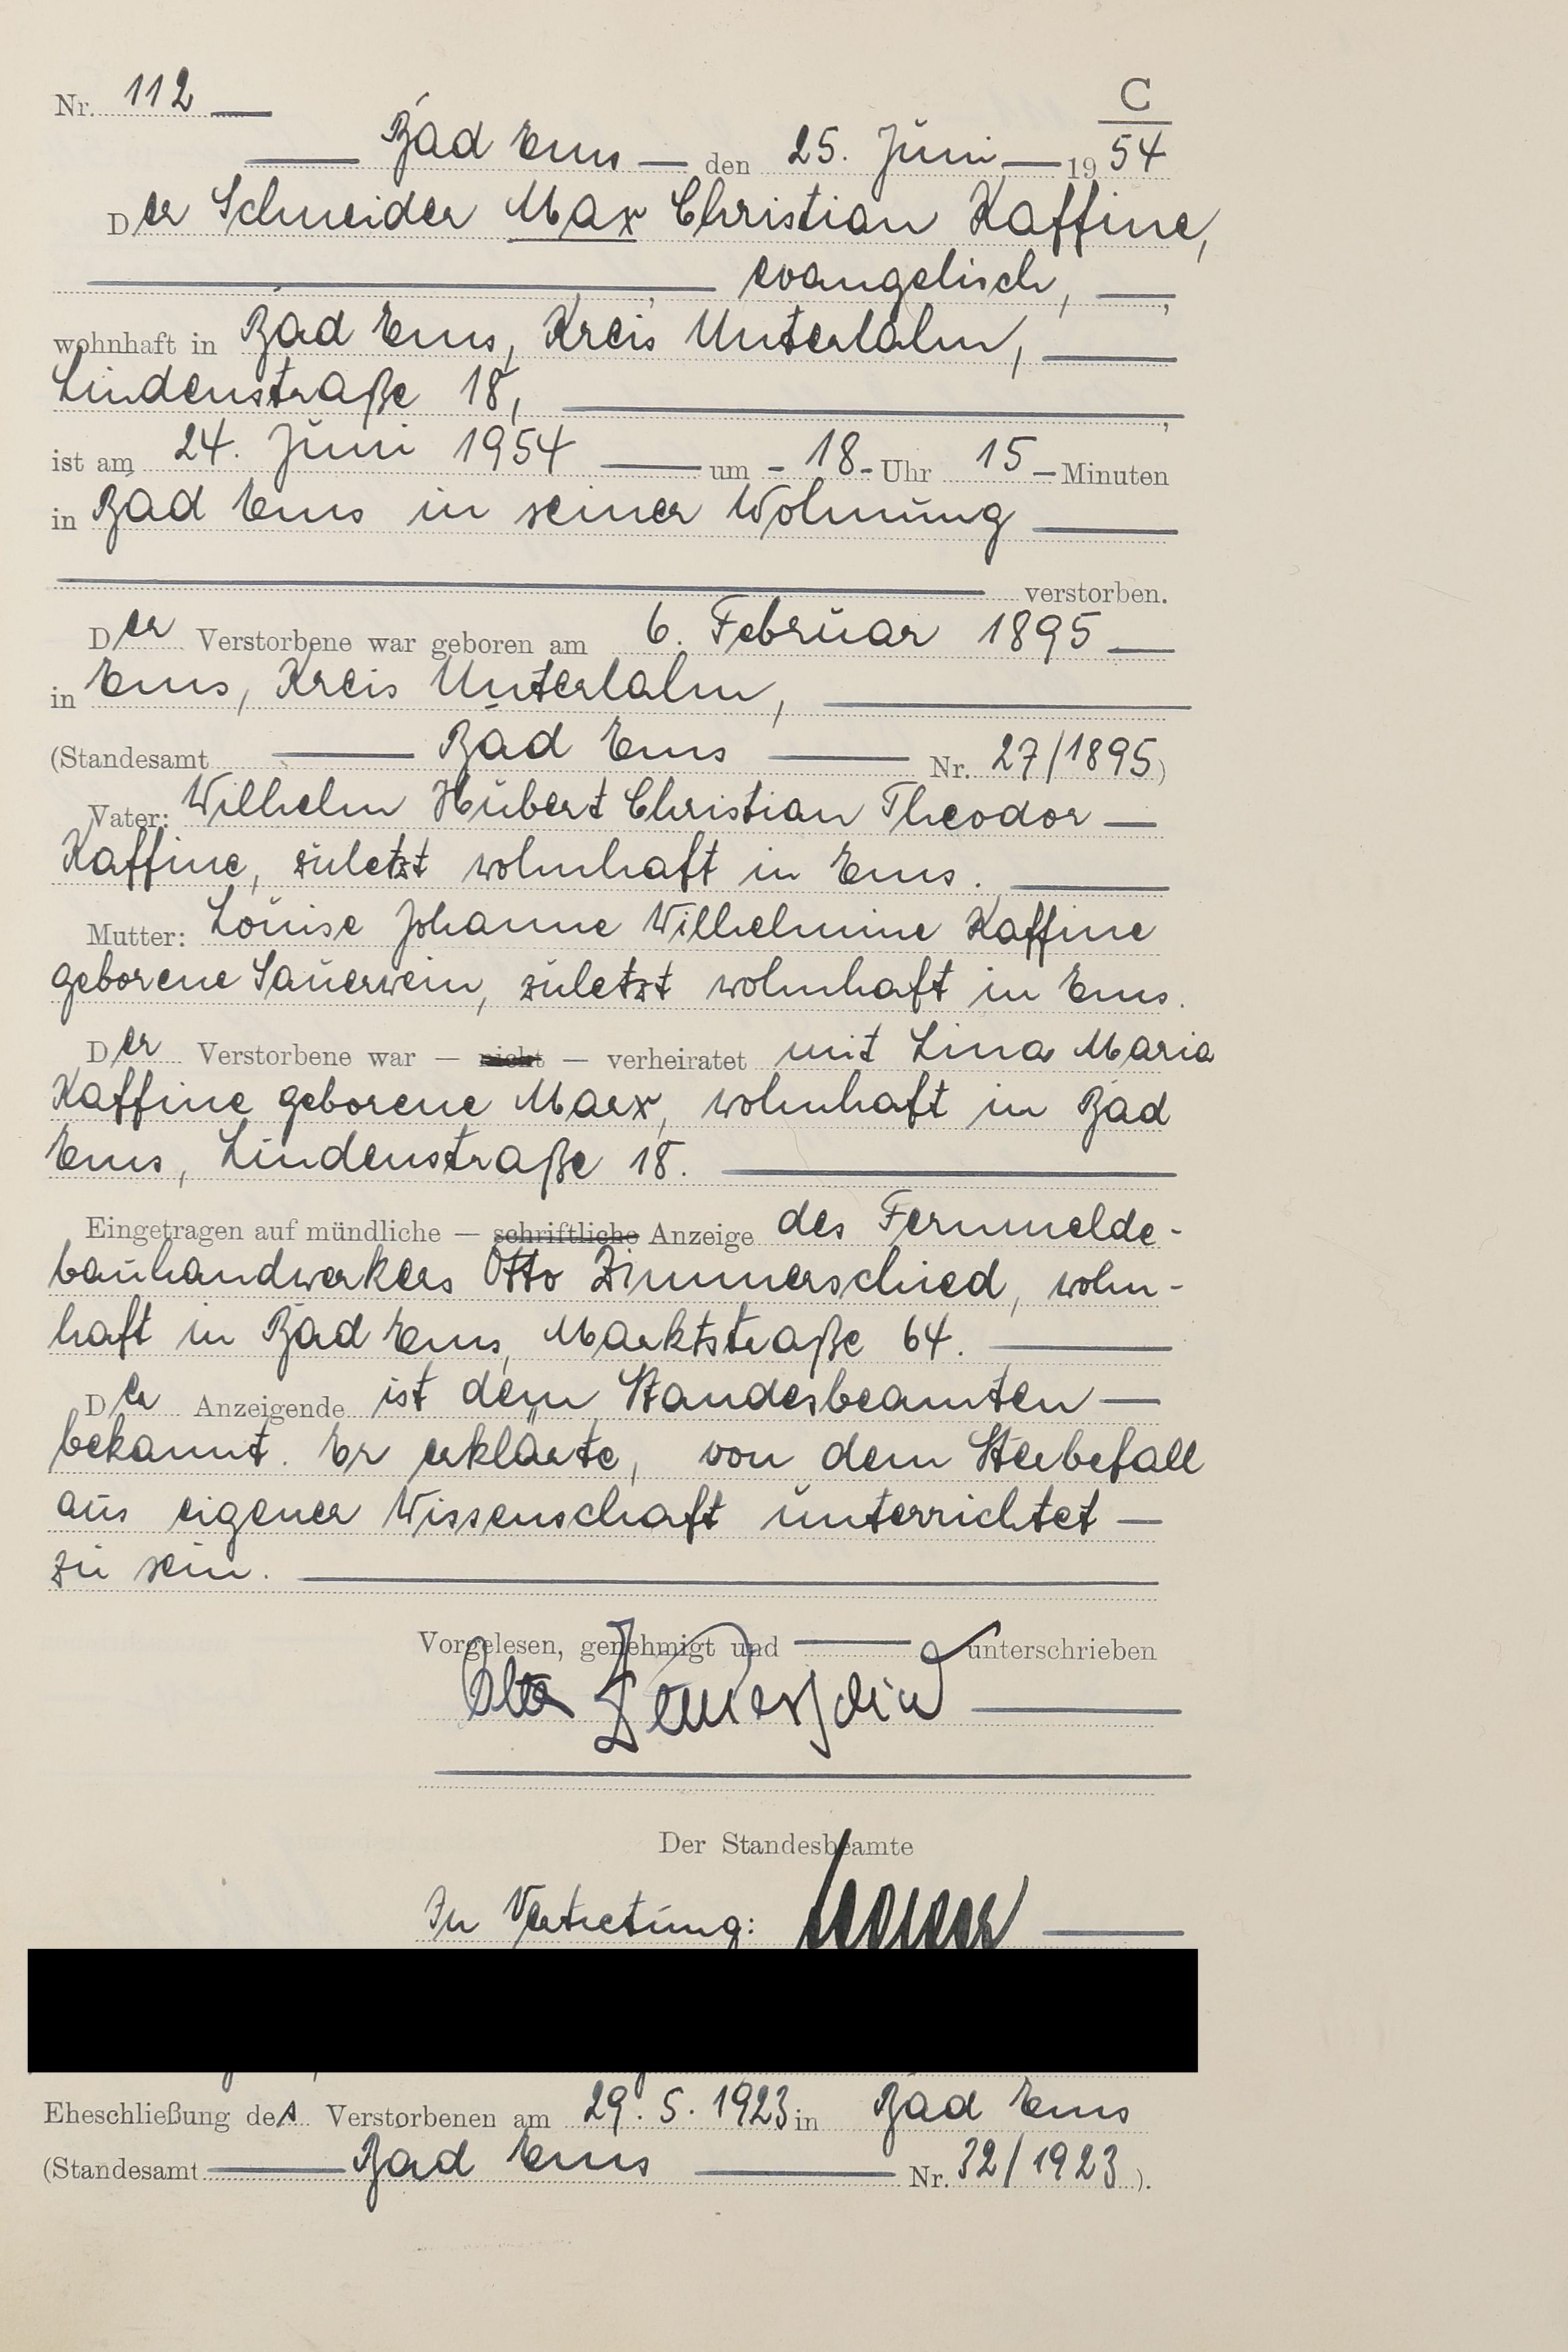 C
Nr. 112
Bad Ems — den 25. Juni — 1954
Der Schneider Max Christian Kaffine,
evangelisch,
wohnhaft in Bad Ems, Kreis Unterlahn,
Lindenstraße 18,
ist am 24. Juni 1954 — um - 18 - Uhr 15 — Minuten
in Bad Ems in seiner Wohnung
verstorben.
Der Verstorbene war geboren am 6. Februar 1895
in Ems, Kreis Unterlahn,
(Standesamt — Bad Ems — Nr. 27/1895)
Vater: Wilhelm Hubert Christian Theodor —
Kaffine, zuletzt wohnhaft in Ems.
Mutter: Louise Johanne Wilhelmine Kaffine
geborene Sauerwein, zuletzt wohnhaft in Ems.
Der Verstorbene war — nicht — verheiratet mit Lina Maria
Kaffine geborene Marx, wohnhaft in Bad
Ems, Lindenstraße 18.
Eingetragen auf mündliche — schriftliche Anzeige des Fernmelde-
bauhandwerkers Otto Zimmerschied, wohn-
haft in Bad Ems, Marktstraße 64.
Der Anzeigende ist dem Standesbeamten —
bekannt. Er erklärte, von dem Sterbefall
aus eigener Wissenschaft unterrichtet —
zu sein.
Vorgelesen, genehmigt und — unterschrieben
Otto
Der Standesbeamte
In Vertretung:
Eheschließung des Verstorbenen am 29. 5. 1923 in Bad Ems
(Standesamt — Bad Ems — Nr. 32/1923).